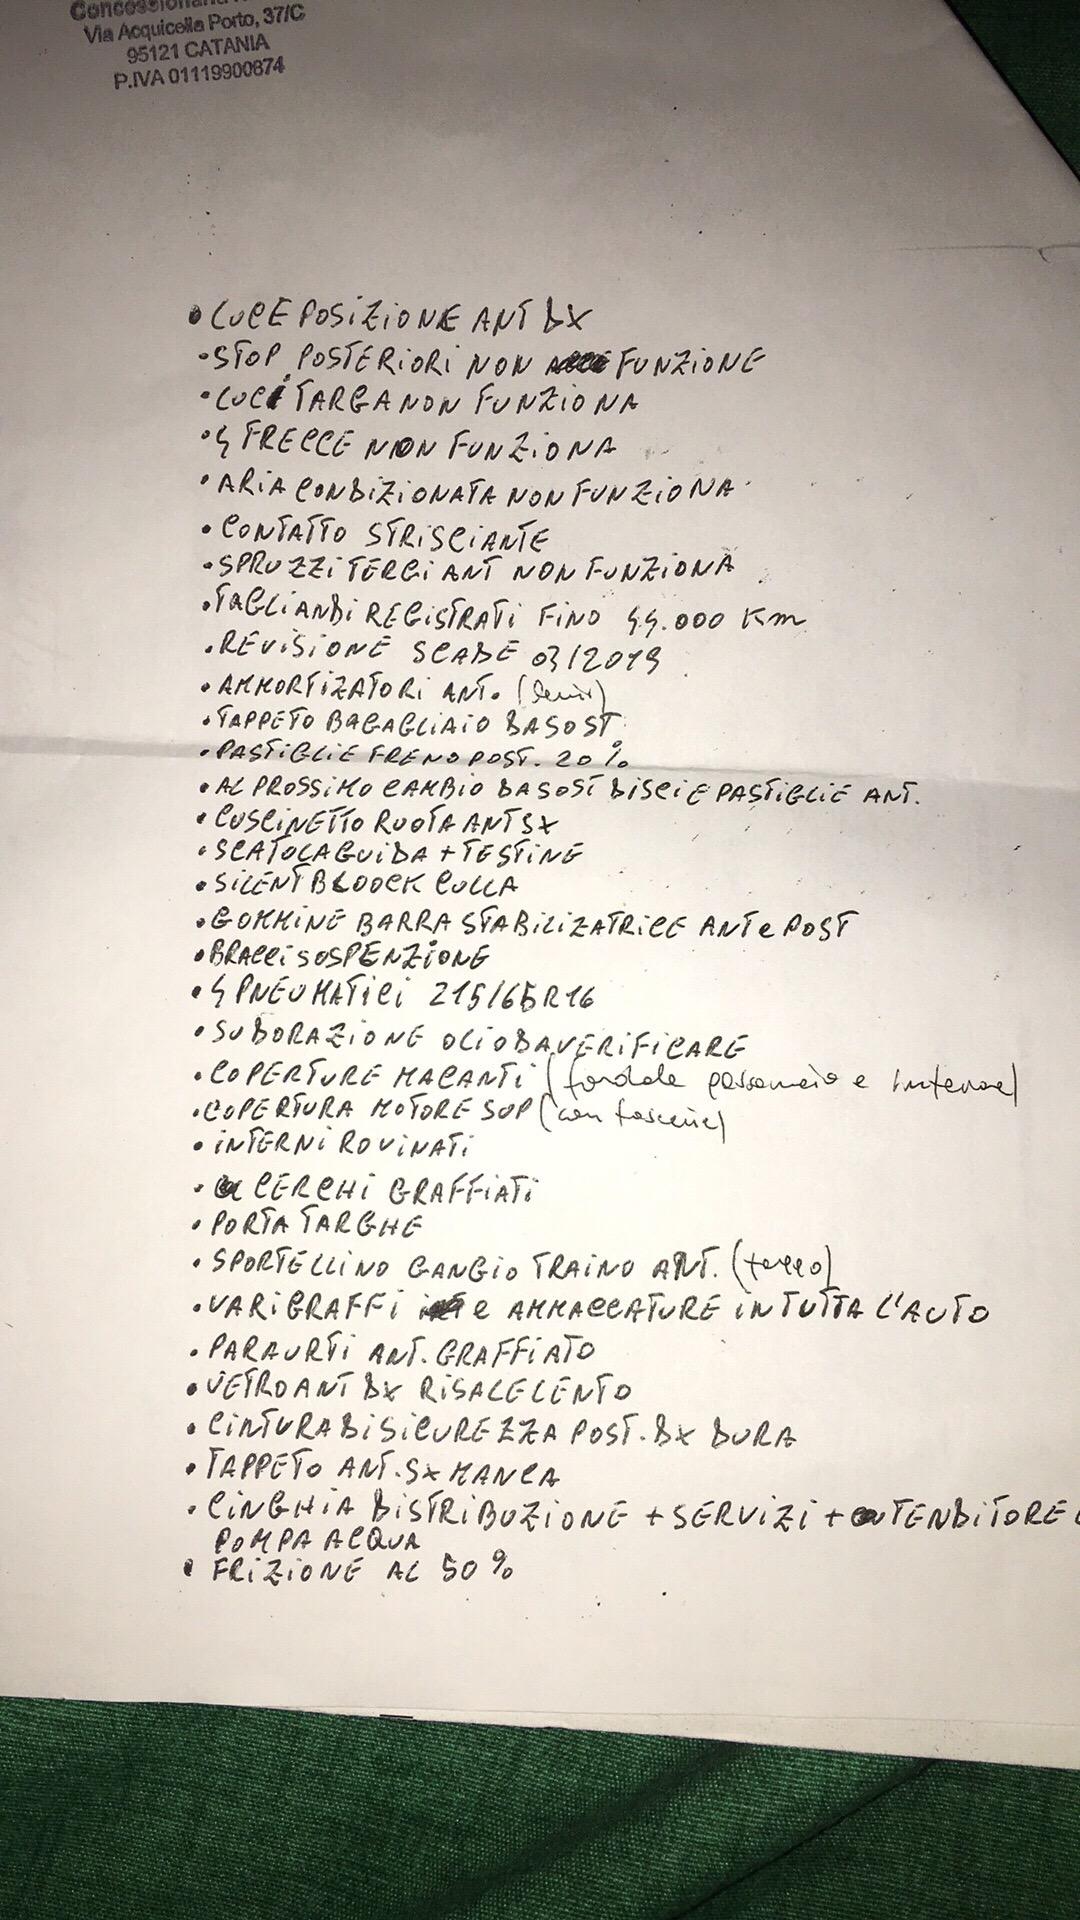 Via Acquicella Porto, 37/C
95121 CATANIA
P.IVA 01119900874
• LUCE POSIZIONE ANT DX
• STOP POSTERIORI NON FUNZIONE
• LUCI TARGA NON FUNZIONA
• 4 FRECCE NON FUNZIONA
• ARIA CONDIZIONATA NON FUNZIONA
• CONTATTO STRISCIANTE
• SPRUZZI TERGI ANT NON FUNZIONA
• TAGLIANDI REGISTRATI FINO 44.000 Km
• REVISIONE SCADE 03/2019
• AMMORTIZATORI ANT.
• TAPPETO BAGAGLIAIO DA SOST
• PASTIGLIE FRENO POST. 20%
• AL PROSSIMO CAMBIO DA SOST DISCI E PASTIGLIE ANT.
• CUSCINETTO RUOTA ANT SX
• SCATOLA GUIDA + TESTINE
• SILENT BLOOCK CULLA
• GOMMINE BARRA STABILIZATRICE ANT e POST
• BRACCI SOSPENZIONE
• 4 PNEUMATICI 215/65R16
• SUDORAZIONE OLIO DA VERIFICARE
• COPERTURE MACANTI ( e
• COPERTURA MOTORE SUP (con
• INTERNI ROVINATI
• CERCHI GRAFFIATI
• PORTA TARGHE
• SPORTELLINO GANGIO TRAINO ANT. (tappo)
• VARI GRAFFI e AMMACCATURE IN TUTTA L'AUTO
• PARAURTI ANT. GRAFFIATO
• VETRO ANT DX RISALE LENTO
• CINTURA DI SICUREZZA POST. DX DURA
• TAPPETO ANT. SX MANCA
• CINGHIA DISTRIBUZIONE + SERVIZI + TENDITORE
POMPA ACQUA
• FRIZIONE AL 50%